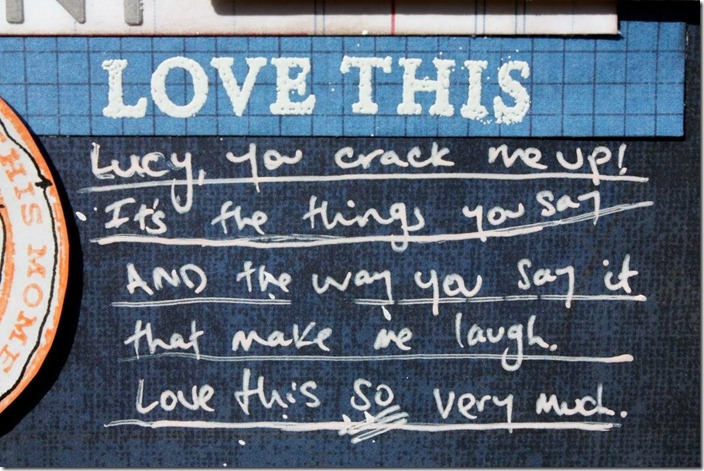 LOVE THIS
Lucy, you crack me up!
It's the things you say
AND the way you say it
that make me laugh.
Love this so very much.
HIS MOME